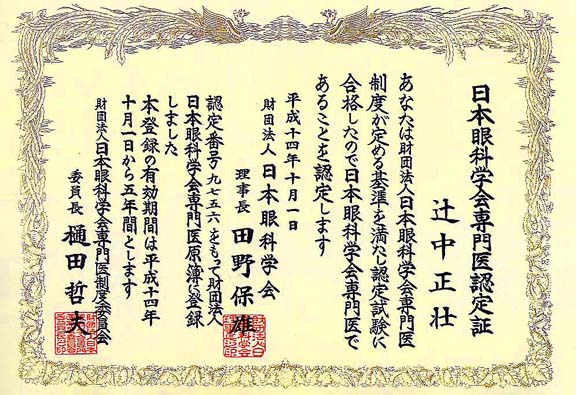 日本眼科学会専門医認定証
辻中正壮
あなたは財団法人日本眼科学会専門医
制度が定める基準を満たし認定試験に
合格したので日本眼科学会専門医で
あることを認定します
平成十四年十月一日
財団法人 日本眼科学会
理事長 田野保雄
認定番号九七五六をもって財団法人
日本眼科学会専門医原簿に登録
しました
本登録の有効期間は平成十四年
十月一日から五年間とします
財団法人日本眼科学会専門医制度委員会
委員長 樋田哲夫